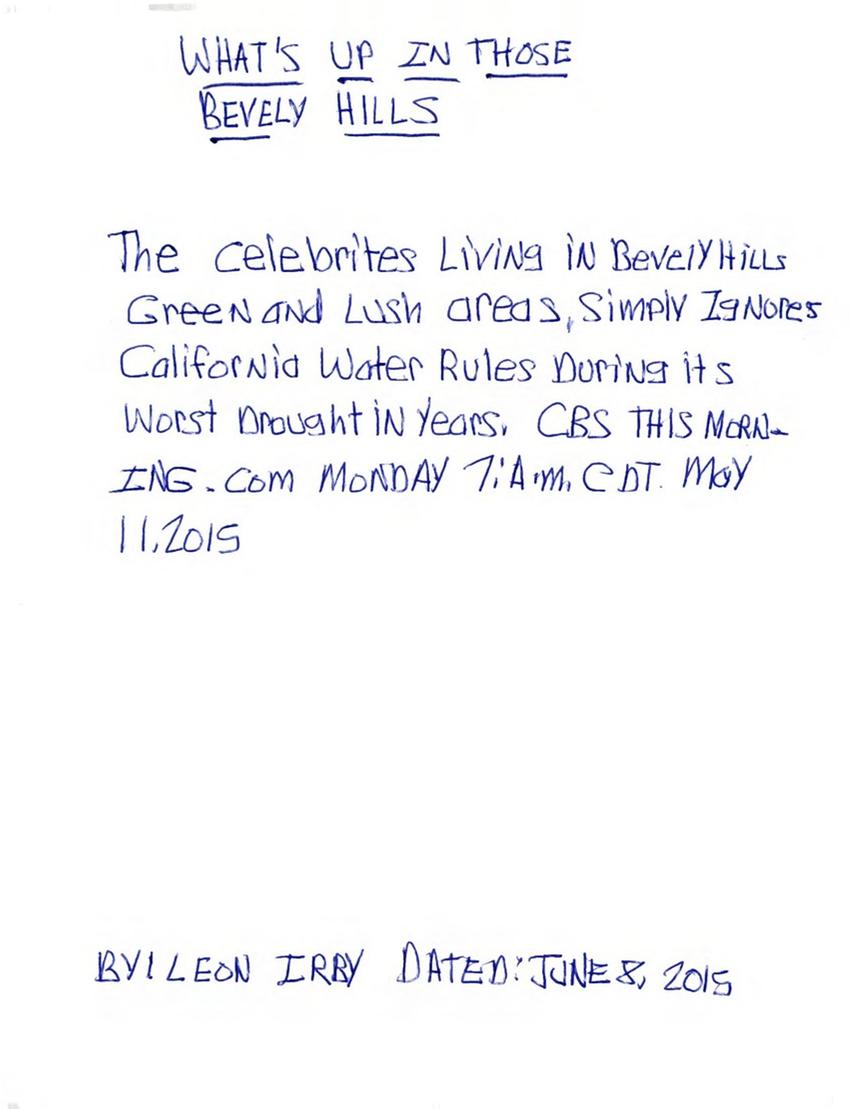 WHAT'S UP IN THOSE
BEVELY HILLS
The celebrites Living in Bevely Hills
Green and Lush areas, Simply Ignores
California Water Rules During its
Worst Drought in years. CBS THIS MORN-
ING.com MONDAY 7:A.m. CDT. May
11,2015
BY: LEON IRBY DATED: JUNE 8, 2015